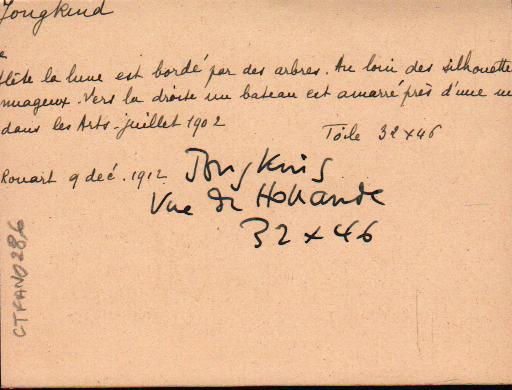 Jongkind
e
flète la lune est bordé par des arbres. Au loin des silhouette
nuageux. Vers la droite un bateau est amarré près d'une m
dans les Arts - juillet 1902
Toile 32 x 46
Rouart 9 déc. 1912
Jongking
Vue de Hollande
32 x 46
CTFAN0286